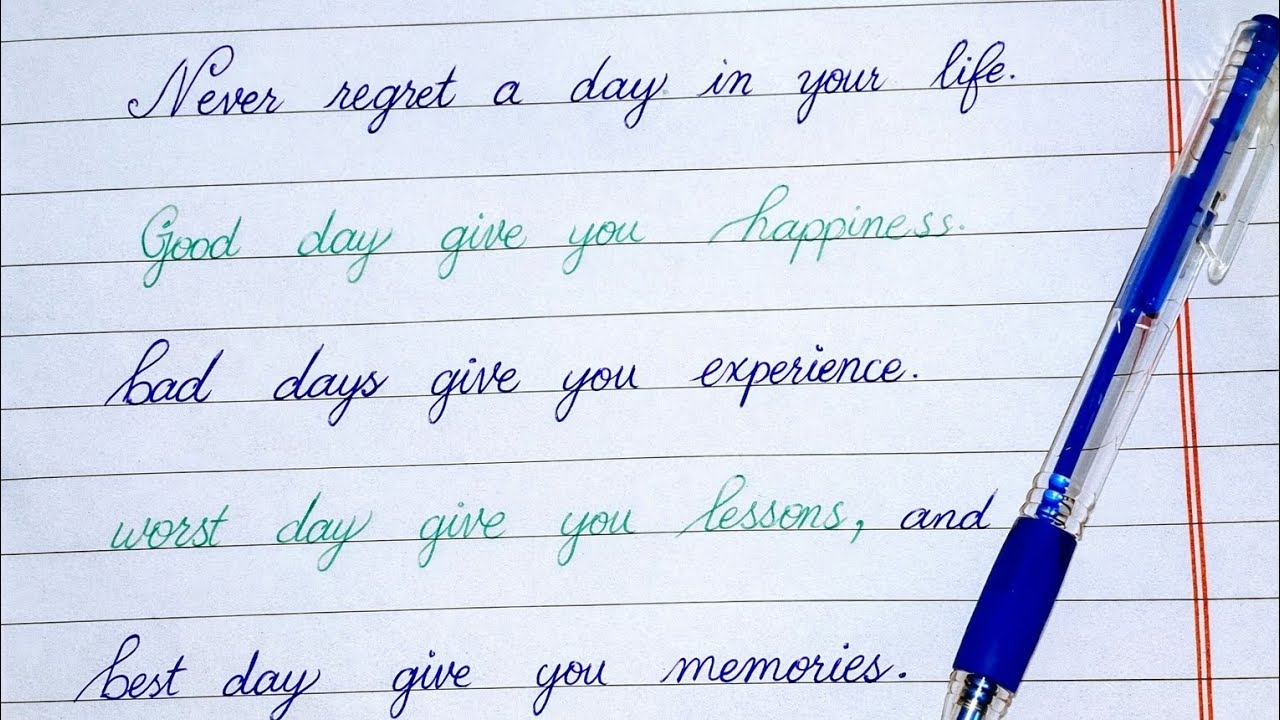 Never regret a day in your life.
Good day give you happiness.
bad days give you experience.
worst day give you lessons, and
best day give you memories.